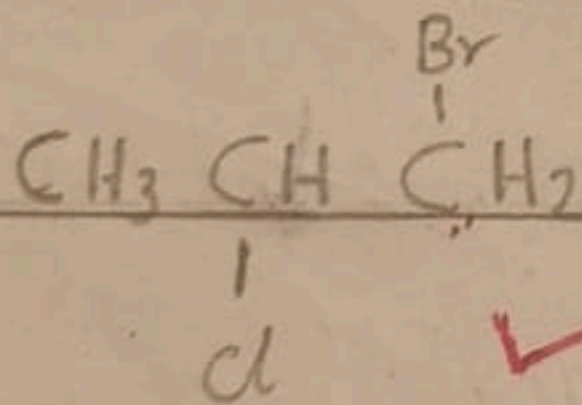 Br
CH3 CH CH2
Cl